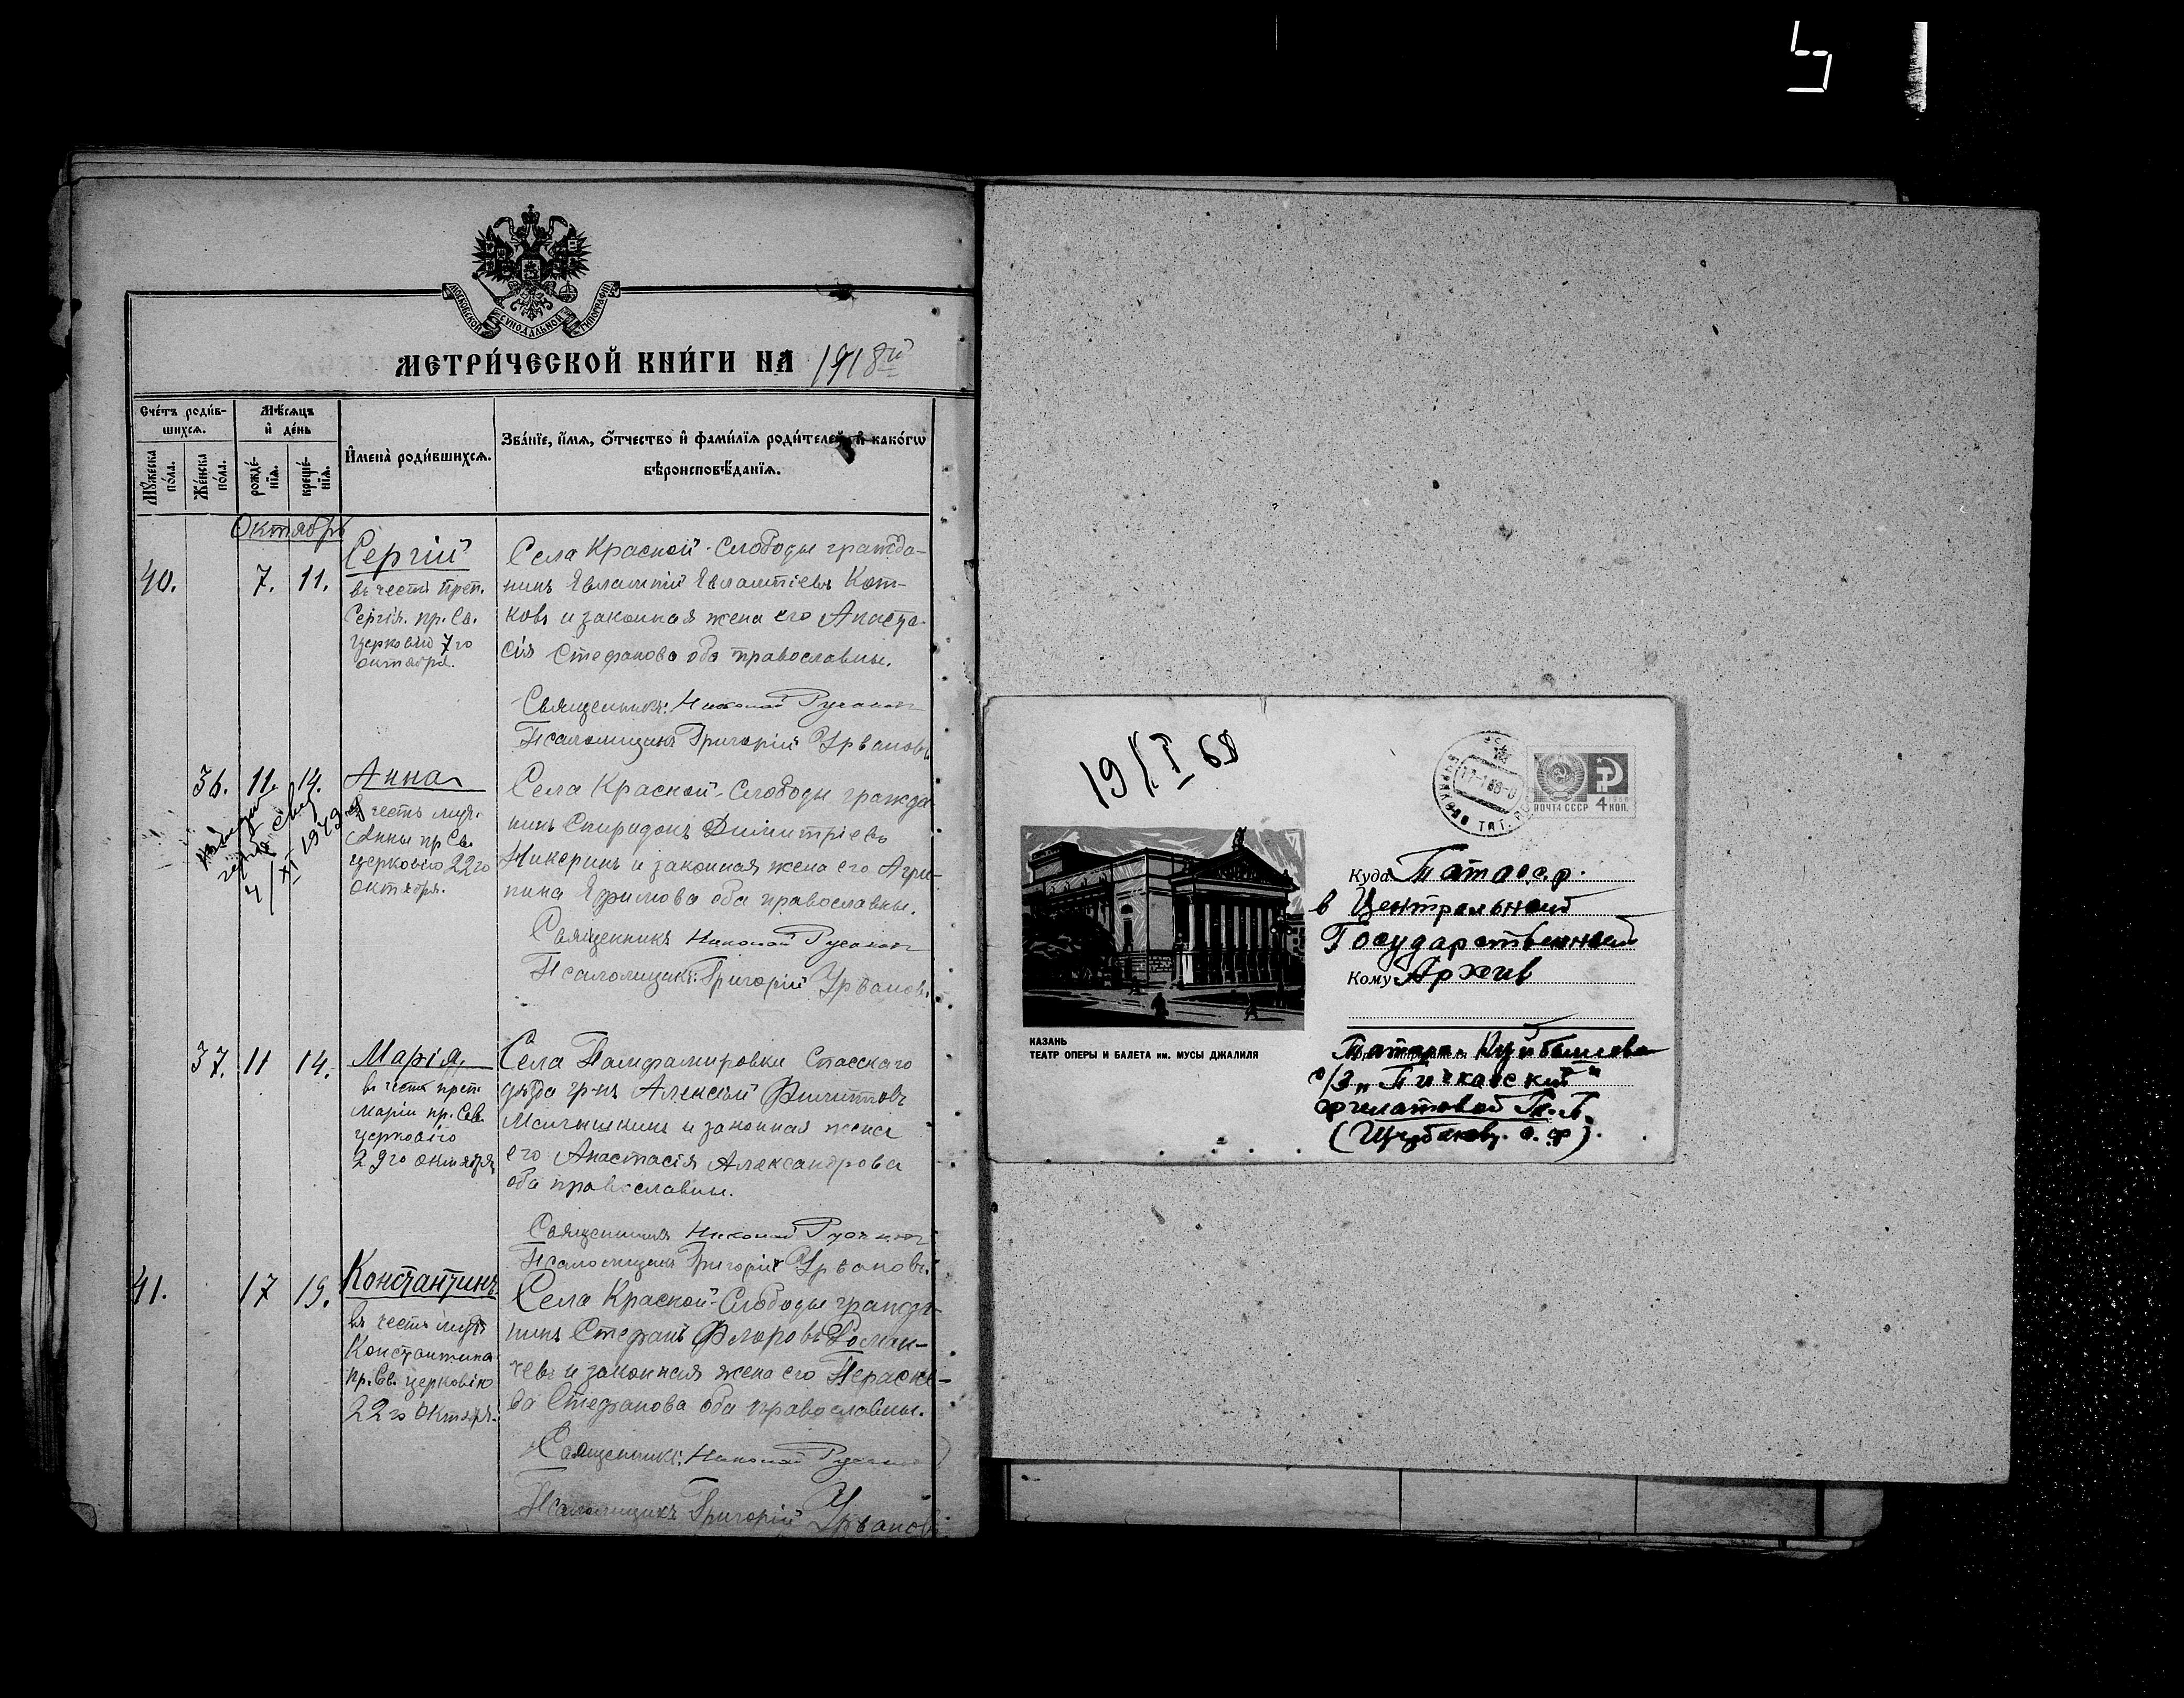 МОСКОВСКОЙ СѴНОДАЛЬНОЙ ТИПОГРАФІИ
МЕТРИ́ЧЕСКОЙ КНИ́ГИ НА 1918й
Сче́тъ роди́в-
шихсѧ.
Мѣ́сѧцъ
и҆ де́нь
И҆мена̀ роди́вшихсѧ.
Зва́нїе, и҆́мѧ, ѻ҆́тчество и҆ фами́лїѧ роди́телей, и҆ како́гѡ
вѣроисповѣ́данїѧ.
Мꙋ́жеска
по́ла.
Же́нска
по́ла.
рожде́-
нїѧ.
креще́-
нїѧ.
Октябрь
40. 7. 11.
Сергій
въ честь преп.
Сергія. пр. Св.
Церковію 7го
октября.
Села Красной-Слободы гражда-
нинъ Евлампій Евлампіевъ Кот-
ковъ и законная жена его Анаста-
сія Стефанова оба православны.
Священникъ: Николай Русановъ
Псаломщикъ Григорій Урвановъ
36. 11. 14.
4/XI 1943
Анна
въ честь муч.
Анны пр Св.
церковію 22го
октября.
Села Красной-Слободы гражда
нинъ Спиридонъ Димитріевъ
Никеринъ и законная жена его Агри-
пина Ефимова оба православны.
Священникъ Николай Русановъ
Псаломщикъ: Григорій Урвановъ.
37. 11 14.
Марія,
въ честь преп.
Маріи пр. Св.
церковію
29го октября
Села Памфамировки Спасскаго
уѣзда гр-нъ Алексѣй Филипповъ
Малышкинъ и законная жена
его Анастасія Александрова
оба православны.
Священникъ Николай Русановъ
Псаломщикъ Григорій Урвановъ.
41. 17 19.
Константинъ
въ честь муч.
Константина
пр. Св. церковію
22го октября.
Села Красной-Слободы гражда-
нинъ Стефанъ Флоровъ Роман-
чевъ и законная жена его Параске-
ва Стефанова оба православны.
Священникъ: Николай Русановъ
Псаломщикъ Григорій Урвановъ
19/I 68
ПОЧТА СССР 4 КОП.
КАЗАНЬ
ТЕАТР ОПЕРЫ И БАЛЕТА им. МУСЫ ДЖАЛИЛЯ
Куда Татасср.
в Центральный
Государственный
Кому Архив
Татарс. Куйбышева
с/з „Пичкасский"
Филатовой